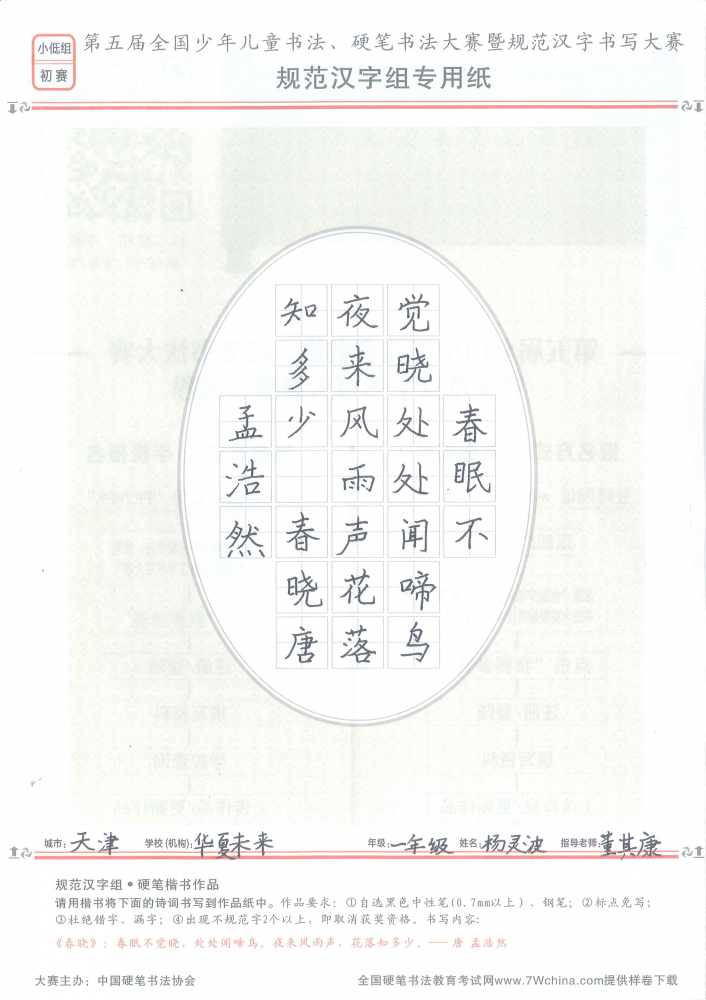 小低组
初赛
第五届全国少年儿童书法、硬笔书法大赛暨规范汉字书写大赛
规范汉字组专用纸
春眠不
觉晓处处闻啼鸟
夜来风雨声花落
知多少 春晓唐
孟浩然
城市：天津 学校(机构)：华夏未来 年级：一年级 姓名：杨灵波 指导老师：董其康
规范汉字组•硬笔楷书作品
请用楷书将下面的诗词书写到作品纸中。作品要求：①自选黑色中性笔(0.7mm以上）、钢笔；②标点免写；
③杜绝错字、漏字；④出现不规范字2个以上，即取消获奖资格。书写内容：
《春晓》：春眠不觉晓，处处闻啼鸟。夜来风雨声，花落知多少。——唐 孟浩然
大赛主办：中国硬笔书法协会
全国硬笔书法教育考试网www.7Wchina.com提供样卷下载